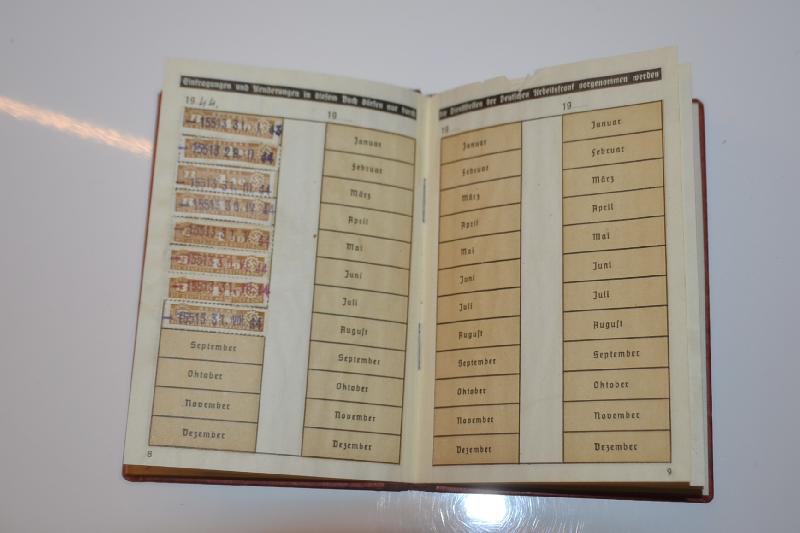 Eintragungen und Aenderungen in diesem Buch dürfen nur durch
1944
15513 31.
15513 28. II. 44
15513 31. III. 44
15513 30. IV. 44
15513
15513
15513
15513 31.
September
Oktober
November
Dezember
19
Januar
Februar
März
April
Mai
Juni
Juli
August
September
Oktober
November
Dezember
8
die Dienststellen der Deutschen Arbeitsfront vorgenommen werden
19
Januar
Februar
März
April
Mai
Juni
Juli
August
September
Oktober
November
Dezember
19
Januar
Februar
März
April
Mai
Juni
Juli
August
September
Oktober
November
Dezember
9